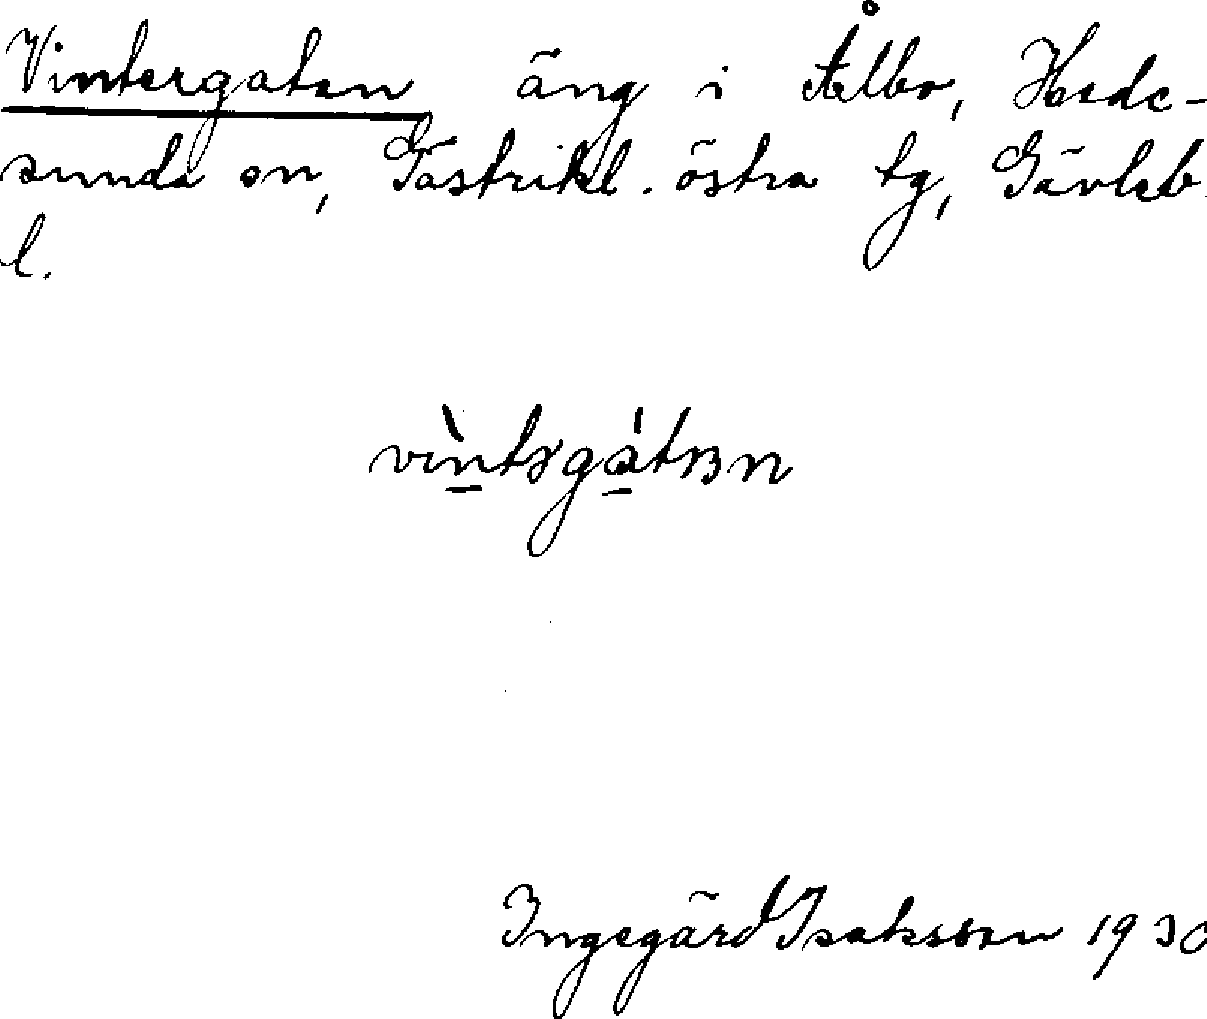 Vintergatan äng i Ålbo, Hede-
sunda sn, Gästrikl. östra tg, Gävleb.
l.
Ingegärd Isaksson 1930